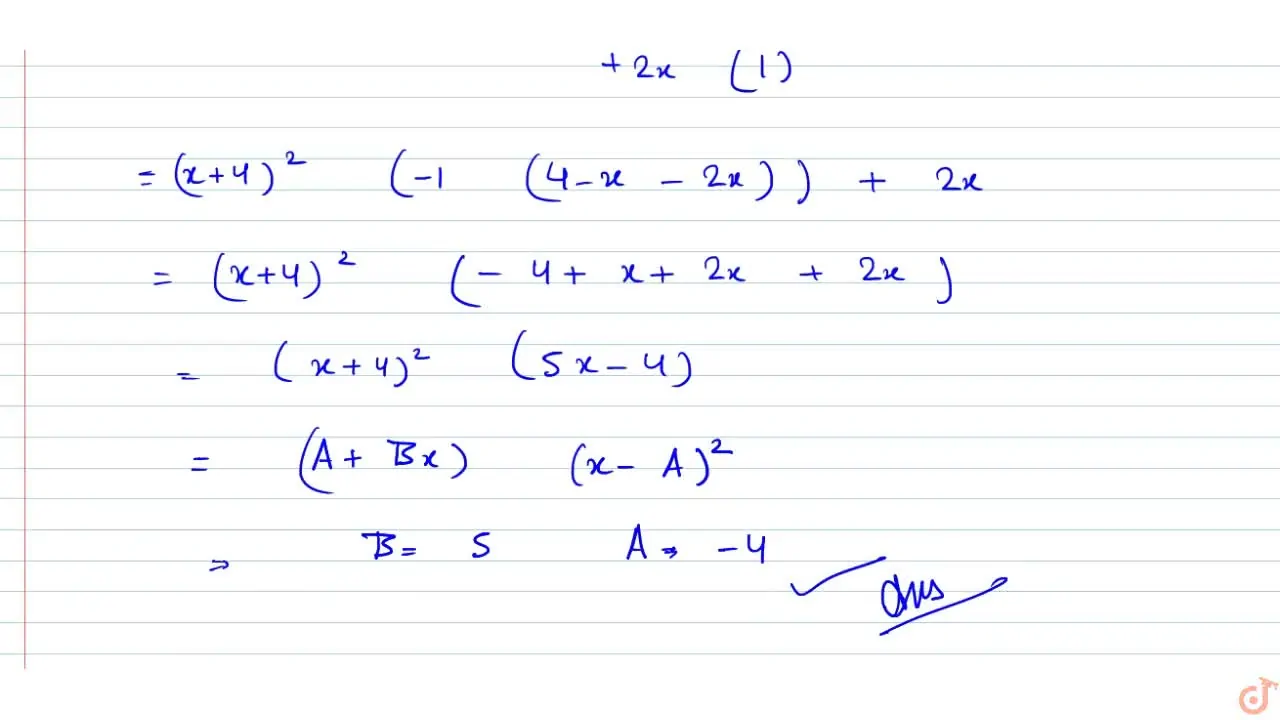 + 2x (1)
= (x+4)² (-1 (4-x - 2x)) + 2x
= (x+4)² (- 4 + x + 2x + 2x)
= (x+4)² (5x - 4)
= (A + Bx) (x - A)²
⇒ B = 5 A = -4 ✓ Ans